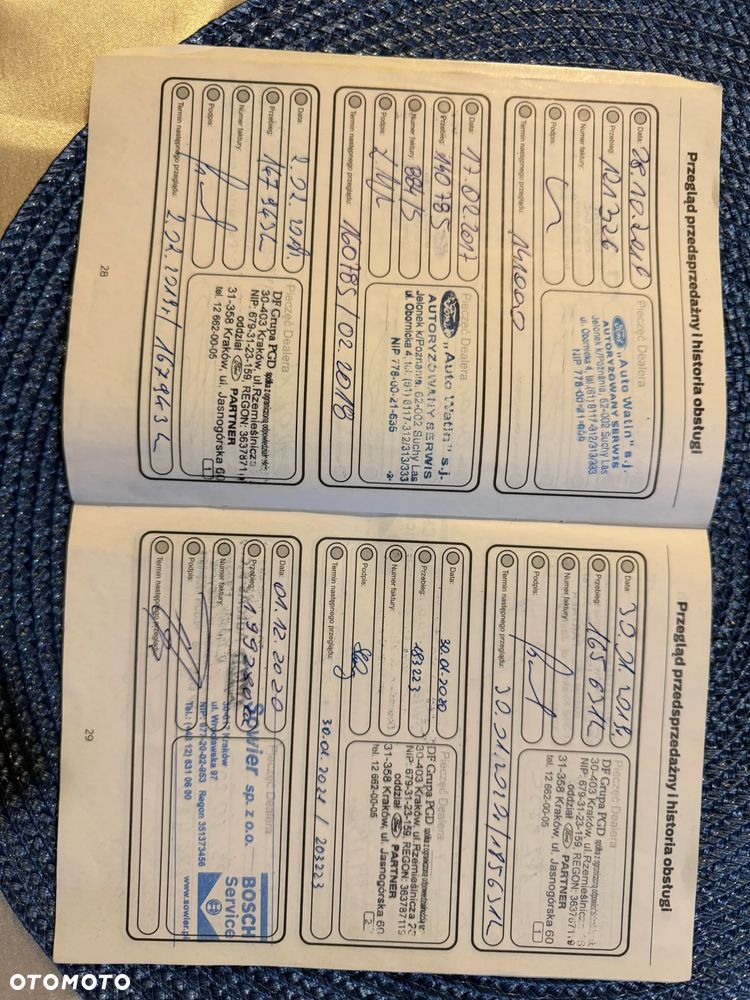 Przegląd przedsprzedażny i historia obsługi
Data: 28.10.2016
Przebieg: 121326
Numer faktury:
Podpis:
Termin następnego przeglądu: 141000
Pieczęć Dealera
Ford „Auto Watin" s.j.
AUTORYZOWANY SERWIS
Jelonek k/Poznania, 62-002 Suchy Las
ul. Obornicka 4, tel. (61) 8117-312/313/333
NIP 778-00-21-635
Data: 17.02.2017
Przebieg: 140785
Numer faktury:
Podpis:
Termin następnego przeglądu: 160785/02 2018
Pieczęć Dealera
Ford „Auto Watin" s.j.
AUTORYZOWANY SERWIS
Jelonek k/Poznania, 62-002 Suchy Las
ul. Obornicka 4, tel. (61) 8117-312/313/333
NIP 778-00-21-635
-2-
Data:
Przebieg:
Numer faktury:
Podpis:
Termin następnego przeglądu: 2.02.2019r/
Pieczęć Dealera
DF Grupa PGD spółka z ograniczoną odpowiedzialnością
30-403 Kraków, ul. Rzemieślnicza
NIP: 679-31-23-159, REGON: 3637871
oddział Ford PARTNER
31-358 Kraków, ul. Jasnogórska 60
tel. 12 662-00-05
1
28
Przegląd przedsprzedażny i historia obsługi
Data: 30.01.2019.
Przebieg:
Numer faktury:
Podpis:
Termin następnego przeglądu: 30.01.2020r/
Pieczęć Dealera
DF Grupa PGD spółka z ograniczoną
30-403 Kraków, ul. Rzemieślnicza
NIP: 679-31-23-159, REGON:
oddział Ford PARTNER
31-358 Kraków, ul. Jasnogórska 60
tel. 12 662-00-05
1
Data: 30.01.2020
Przebieg: 183223
Numer faktury:
Podpis:
Termin następnego przeglądu: 30.01.2021 / 203223
Pieczęć Dealera
DF Grupa PGD spółka z ograniczoną odpowiedzialnością
30-403 Kraków, ul. Rzemieślnicza
NIP: 679-31-23-159, REGON: 363787119
oddział Ford PARTNER
31-358 Kraków, ul. Jasnogórska 60
tel. 12 662-00-05
2
Data: 01.12.2020
Przebieg:
Numer faktury:
Podpis:
Termin następnego przeglądu:
Pieczęć Dealera
Sowier sp. z o.o.
Kraków
ul. Wrocławska 97
NIP: 677-20-02-953 Regon 351373456
Tel.: (+48 12) 631 06 80
BOSCH
Service
www.sowier.pl
29
OTOMOTO